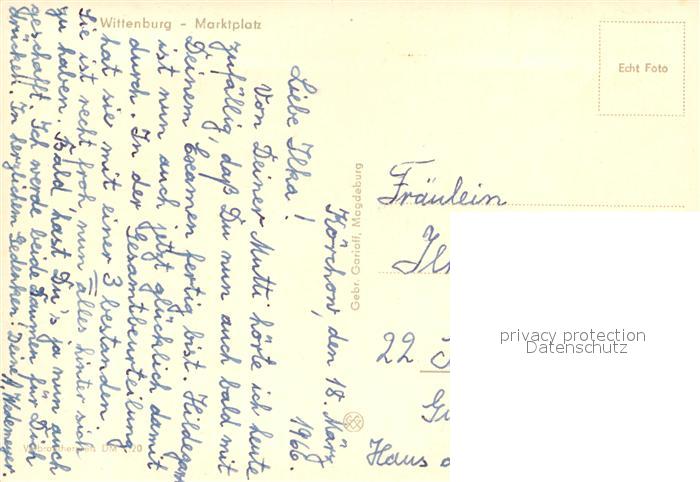 Wittenburg - Marktplatz
Echt Foto
Körchow, den 18. März
1966.
Liebe Ilka!
Von Deiner Mutti hörte ich heute
zufällig, daß Du nun auch bald mit
Deinem Examen fertig bist. Hildegard
ist nun auch jetzt glücklich damit
durch. In der Gesamtbeurteilung
hat sie mit einer 3 bestanden.
Sie ist recht froh, nun alles hinter sich
zu haben. Bald hast Du's ja nun auch
geschafft. Ich werde beide Daumen für Dich
drücken. In herzlichem Gedenken! Deine
Gebr. Garloff, Magdeburg
Fräulein
22
Haus
privacy protection
Datenschutz